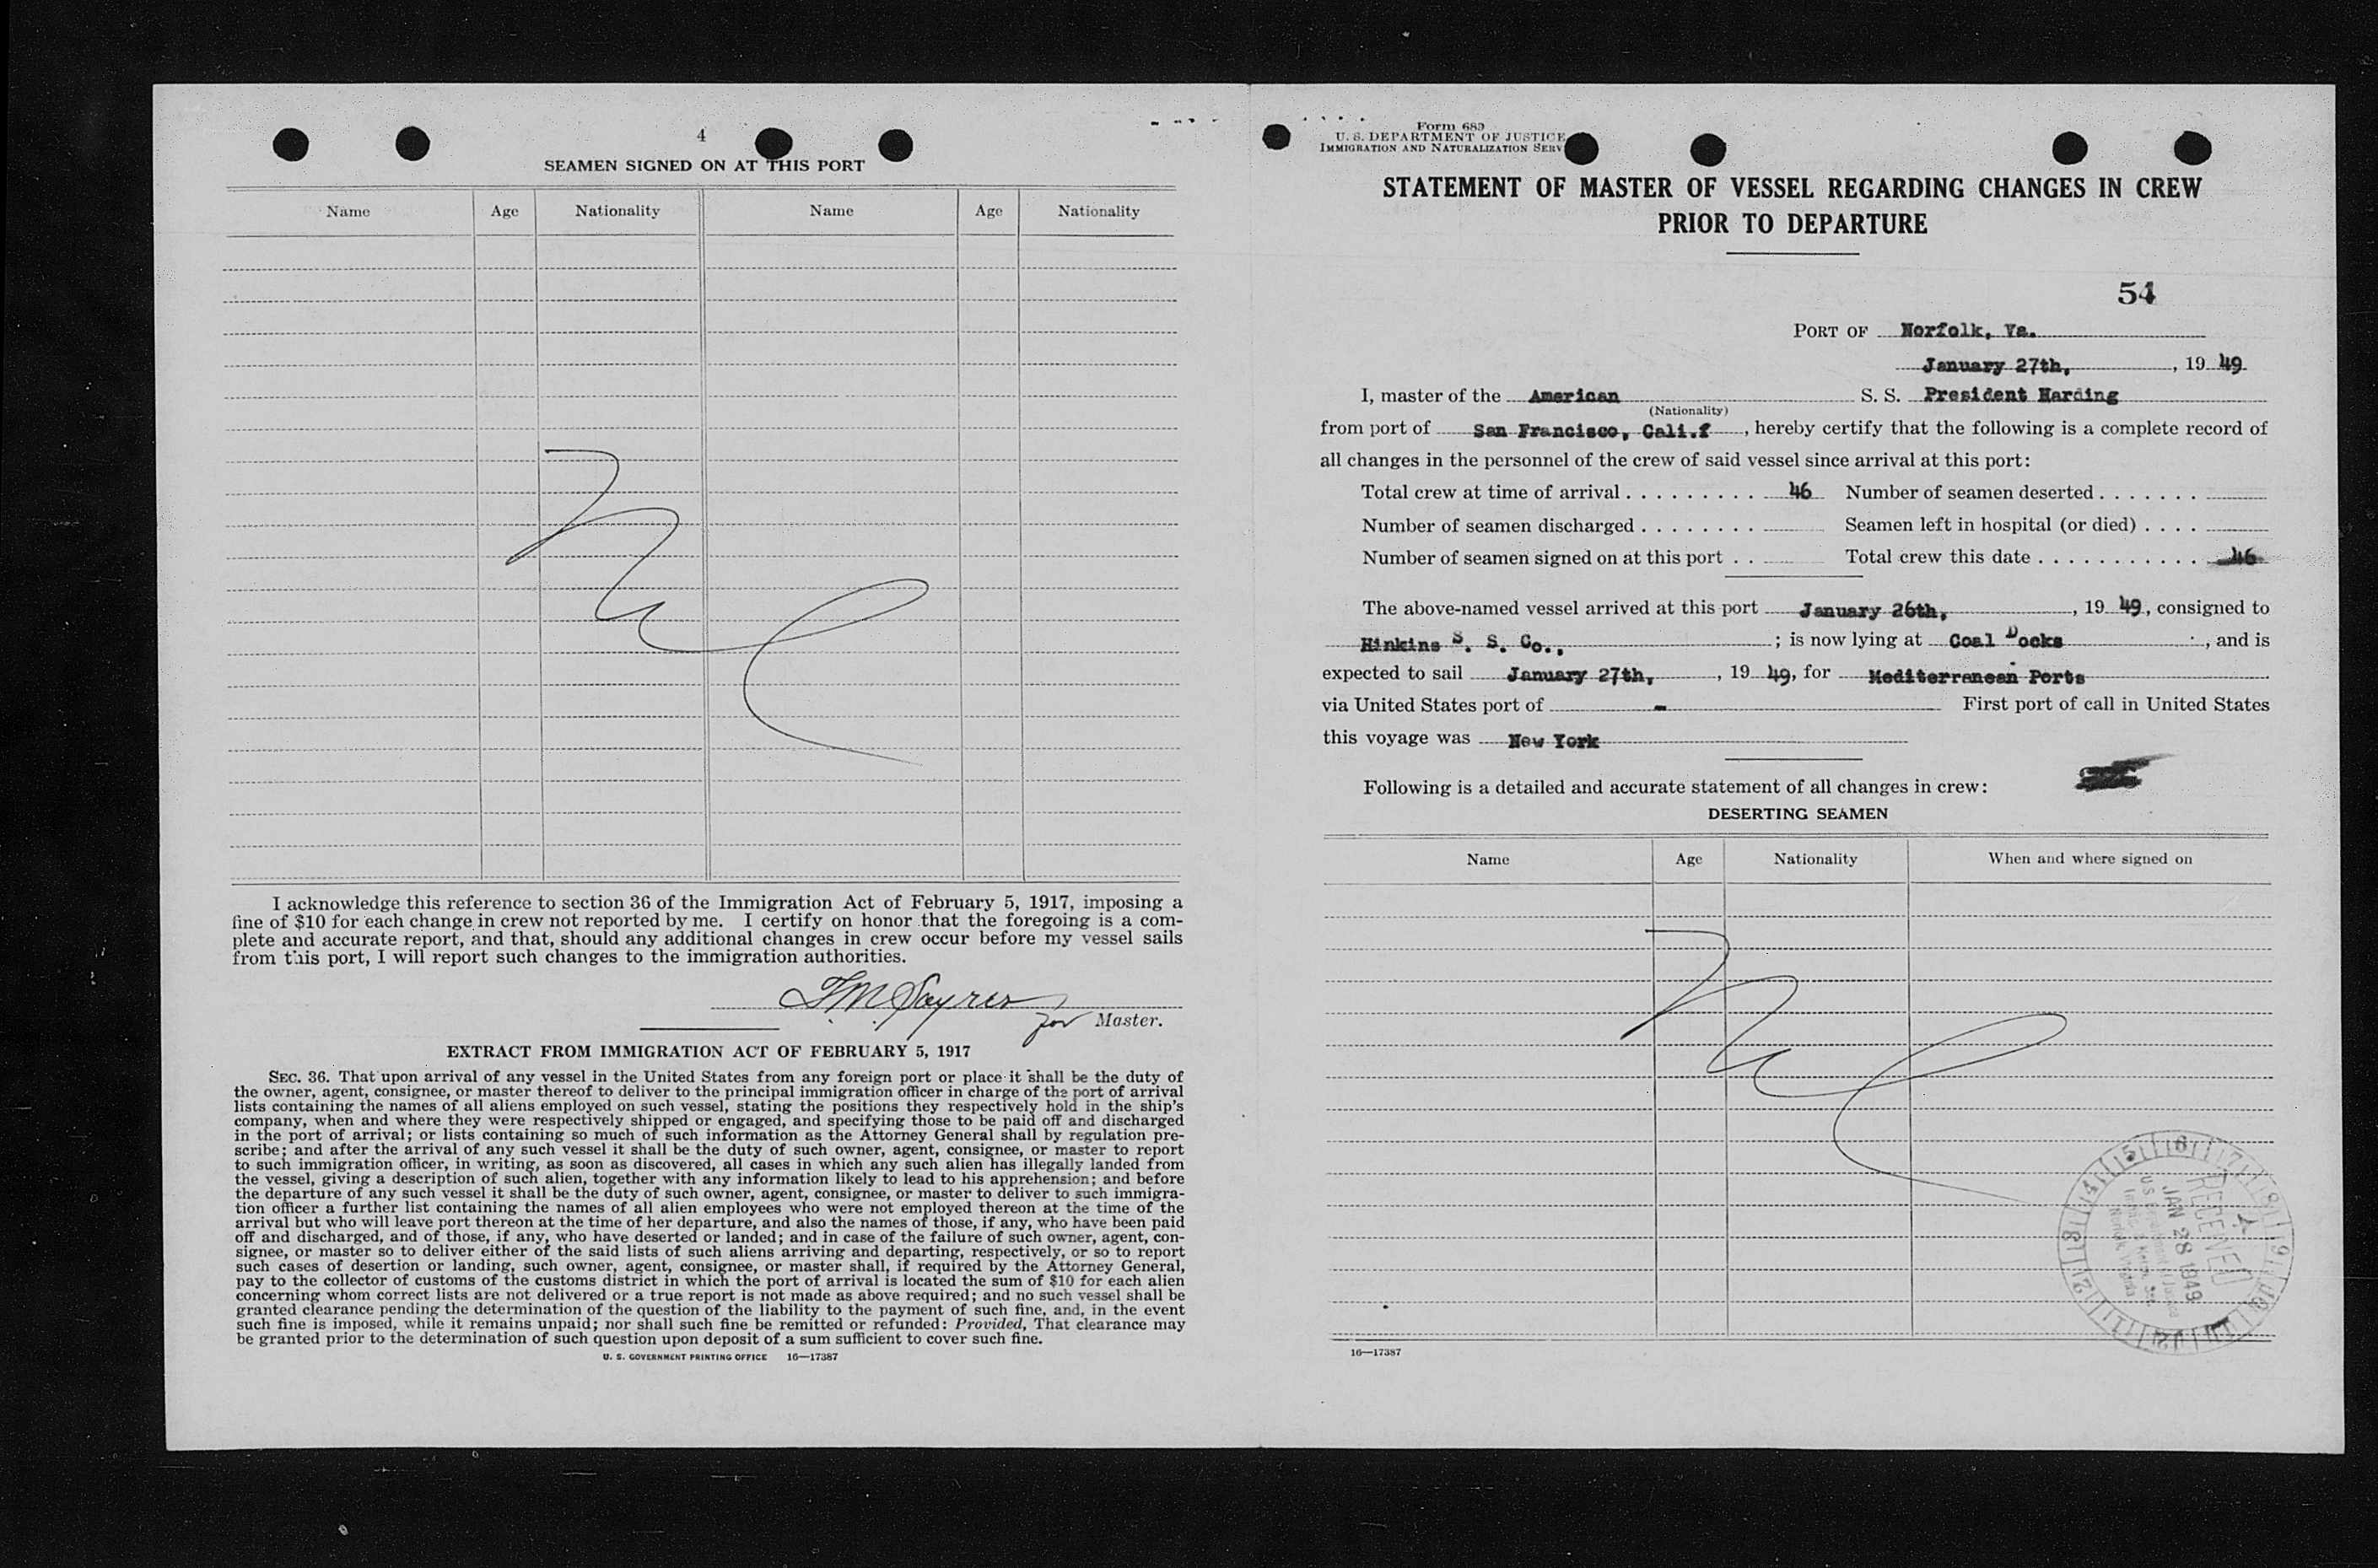 4
SEAMEN SIGNED ON AT THIS PORT
Name Age Nationality Name Age Nationality
I acknowledge this reference to section 36 of the Immigration Act of February 5, 1917, imposing a
fine of $10 for each change in crew not reported by me. I certify on honor that the foregoing is a com-
plete and accurate report, and that, should any additional changes in crew occur before my vessel sails
from this port, I will report such changes to the immigration authorities.
for Master.
EXTRACT FROM IMMIGRATION ACT OF FEBRUARY 5, 1917
SEC. 36. That upon arrival of any vessel in the United States from any foreign port or place it shall be the duty of
the owner, agent, consignee, or master thereof to deliver to the principal immigration officer in charge of the port of arrival
lists containing the names of all aliens employed on such vessel, stating the positions they respectively hold in the ship's
company, when and where they were respectively shipped or engaged, and specifying those to be paid off and discharged
in the port of arrival; or lists containing so much of such information as the Attorney General shall by regulation pre-
scribe; and after the arrival of any such vessel it shall be the duty of such owner, agent, consignee, or master to report
to such immigration officer, in writing, as soon as discovered, all cases in which any such alien has illegally landed from
the vessel, giving a description of such alien, together with any information likely to lead to his apprehension; and before
the departure of any such vessel it shall be the duty of such owner, agent, consignee, or master to deliver to such immigra-
tion officer a further list containing the names of all alien employees who were not employed thereon at the time of the
arrival but who will leave port thereon at the time of her departure, and also the names of those, if any, who have been paid
off and discharged, and of those, if any, who have deserted or landed; and in case of the failure of such owner, agent, con-
signee, or master so to deliver either of the said lists of such aliens arriving and departing, respectively, or so to report
such cases of desertion or landing, such owner, agent, consignee, or master shall, if required by the Attorney General,
pay to the collector of customs of the customs district in which the port of arrival is located the sum of $10 for each alien
concerning whom correct lists are not delivered or a true report is not made as above required; and no such vessel shall be
granted clearance pending the determination of the question of the liability to the payment of such fine, and, in the event
such fine is imposed, while it remains unpaid; nor shall such fine be remitted or refunded: Provided, That clearance may
be granted prior to the determination of such question upon deposit of a sum sufficient to cover such fine.
U. S. GOVERNMENT PRINTING OFFICE 16—17387
Form 689
U. S. DEPARTMENT OF JUSTICE
IMMIGRATION AND NATURALIZATION SERV
STATEMENT OF MASTER OF VESSEL REGARDING CHANGES IN CREW
PRIOR TO DEPARTURE
54
PORT OF Norfolk, Va.
January 27th, , 19 49
I, master of the American S. S. President Harding
(Nationality)
from port of San Francisco, Cali.f , hereby certify that the following is a complete record of
all changes in the personnel of the crew of said vessel since arrival at this port:
Total crew at time of arrival . . . . . . . . . 46 Number of seamen deserted . . . . . . .
Number of seamen discharged . . . . . . . . Seamen left in hospital (or died) . . . .
Number of seamen signed on at this port . . Total crew this date . . . . . . . . . . . 46
The above-named vessel arrived at this port January 26th, , 19 49, consigned to
Hinkins S. S. Co., ; is now lying at Coal Docks , and is
expected to sail January 27th, , 19 49, for Mediterranean Ports
via United States port of - First port of call in United States
this voyage was New York
Following is a detailed and accurate statement of all changes in crew:
DESERTING SEAMEN
Name Age Nationality When and where signed on
RECEIVED
JAN 28 1949
16—17387